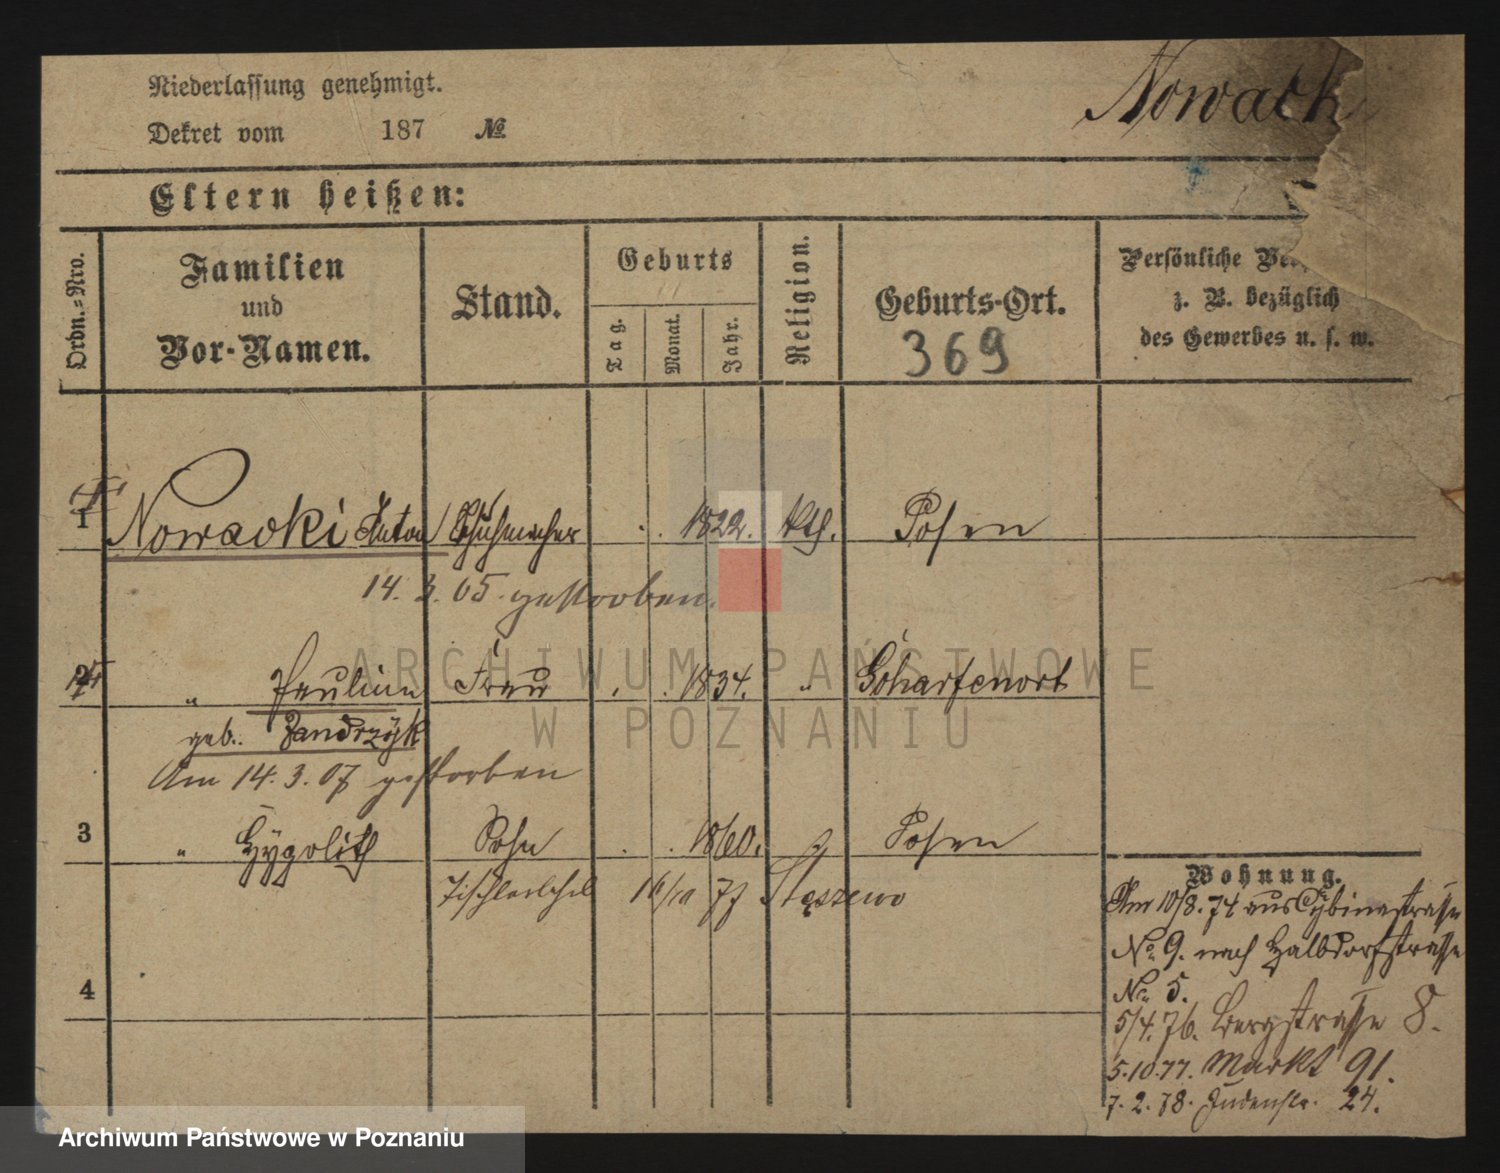 Niederlassung genehmigt.
Dekret vom 187 №
Nowack
Eltern heißen:
Ordn.=Nro.
Familien
und
Vor-Namen.
Stand.
Geburts
Tag.
Monat.
Jahr.
Religion.
Geburts-Ort.
369
Persönliche
z. B. bezüglich
des Gewerbes u. s. w.
1 Nowacki Anton Schuhmacher 1822. kth. Posen
14. 3. 05. gestorben.
2 " Pauline Frau 1834. " Scharfenort
geb. Zandrzyk
Am 14. 3. 07 gestorben
3 " Hypolith Sohn 1860. Posen
16/10 77 Stęszewo
4
Wohnung.
Am 10/8. 74 aus Cybinastrasse
No 9. nach Halbdorfstrasse
No 5.
5/4. 76. Bergstrasse 8.
5.10.77. Markt 91.
7. 2. 78. Judenstr. 24.
ARCHIWUM PAŃSTWOWE
W POZNANIU
Archiwum Państwowe w Poznaniu